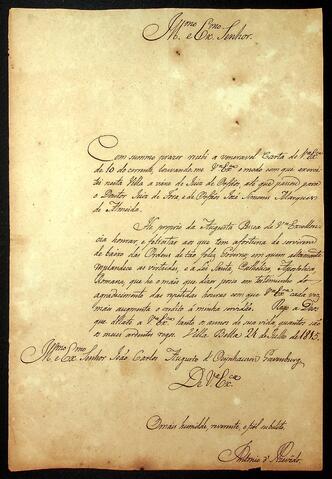 Illmo e Exmo Senhor.
Com summo prazer recebi a veneravel Carta de Va Exa
de 10 do corrente, louvando me Va Exa o modo com que exerci
tei nesta Villa a vara de Juiz de Orfãos, até que passou para
o Doutor Juiz de Fora, e de Orfãos José Marques
de Almeida.
He proprio da Augusta de Va Excellen
cia honrar, e felicitar aos que tem a fortuna de servirem
de baixo das Ordens de tão feliz Governo, em quem altamente
resplandece as virtudes, e a Lei Santa, Catholica, Apostolica
Romana, que he o mais que devo pôr em testimunho do
agradecimento das repetidas honras com que Va Exa cada vez
mais augmenta o credito á minha servidão. Rogo a Deos
que dilate a Va Exa tanto os annos de sua vida, quantos são
os meus ardentes rogos. Villa Bella 24 de Julho de 1815.
Illmo e Exmo Senhor João Carlos Augusto d'Oeynhausen Gravenburg.
De Va Exa
O mais humilde, reverente, e fiel subdito.
Antonio d' Azevedo.